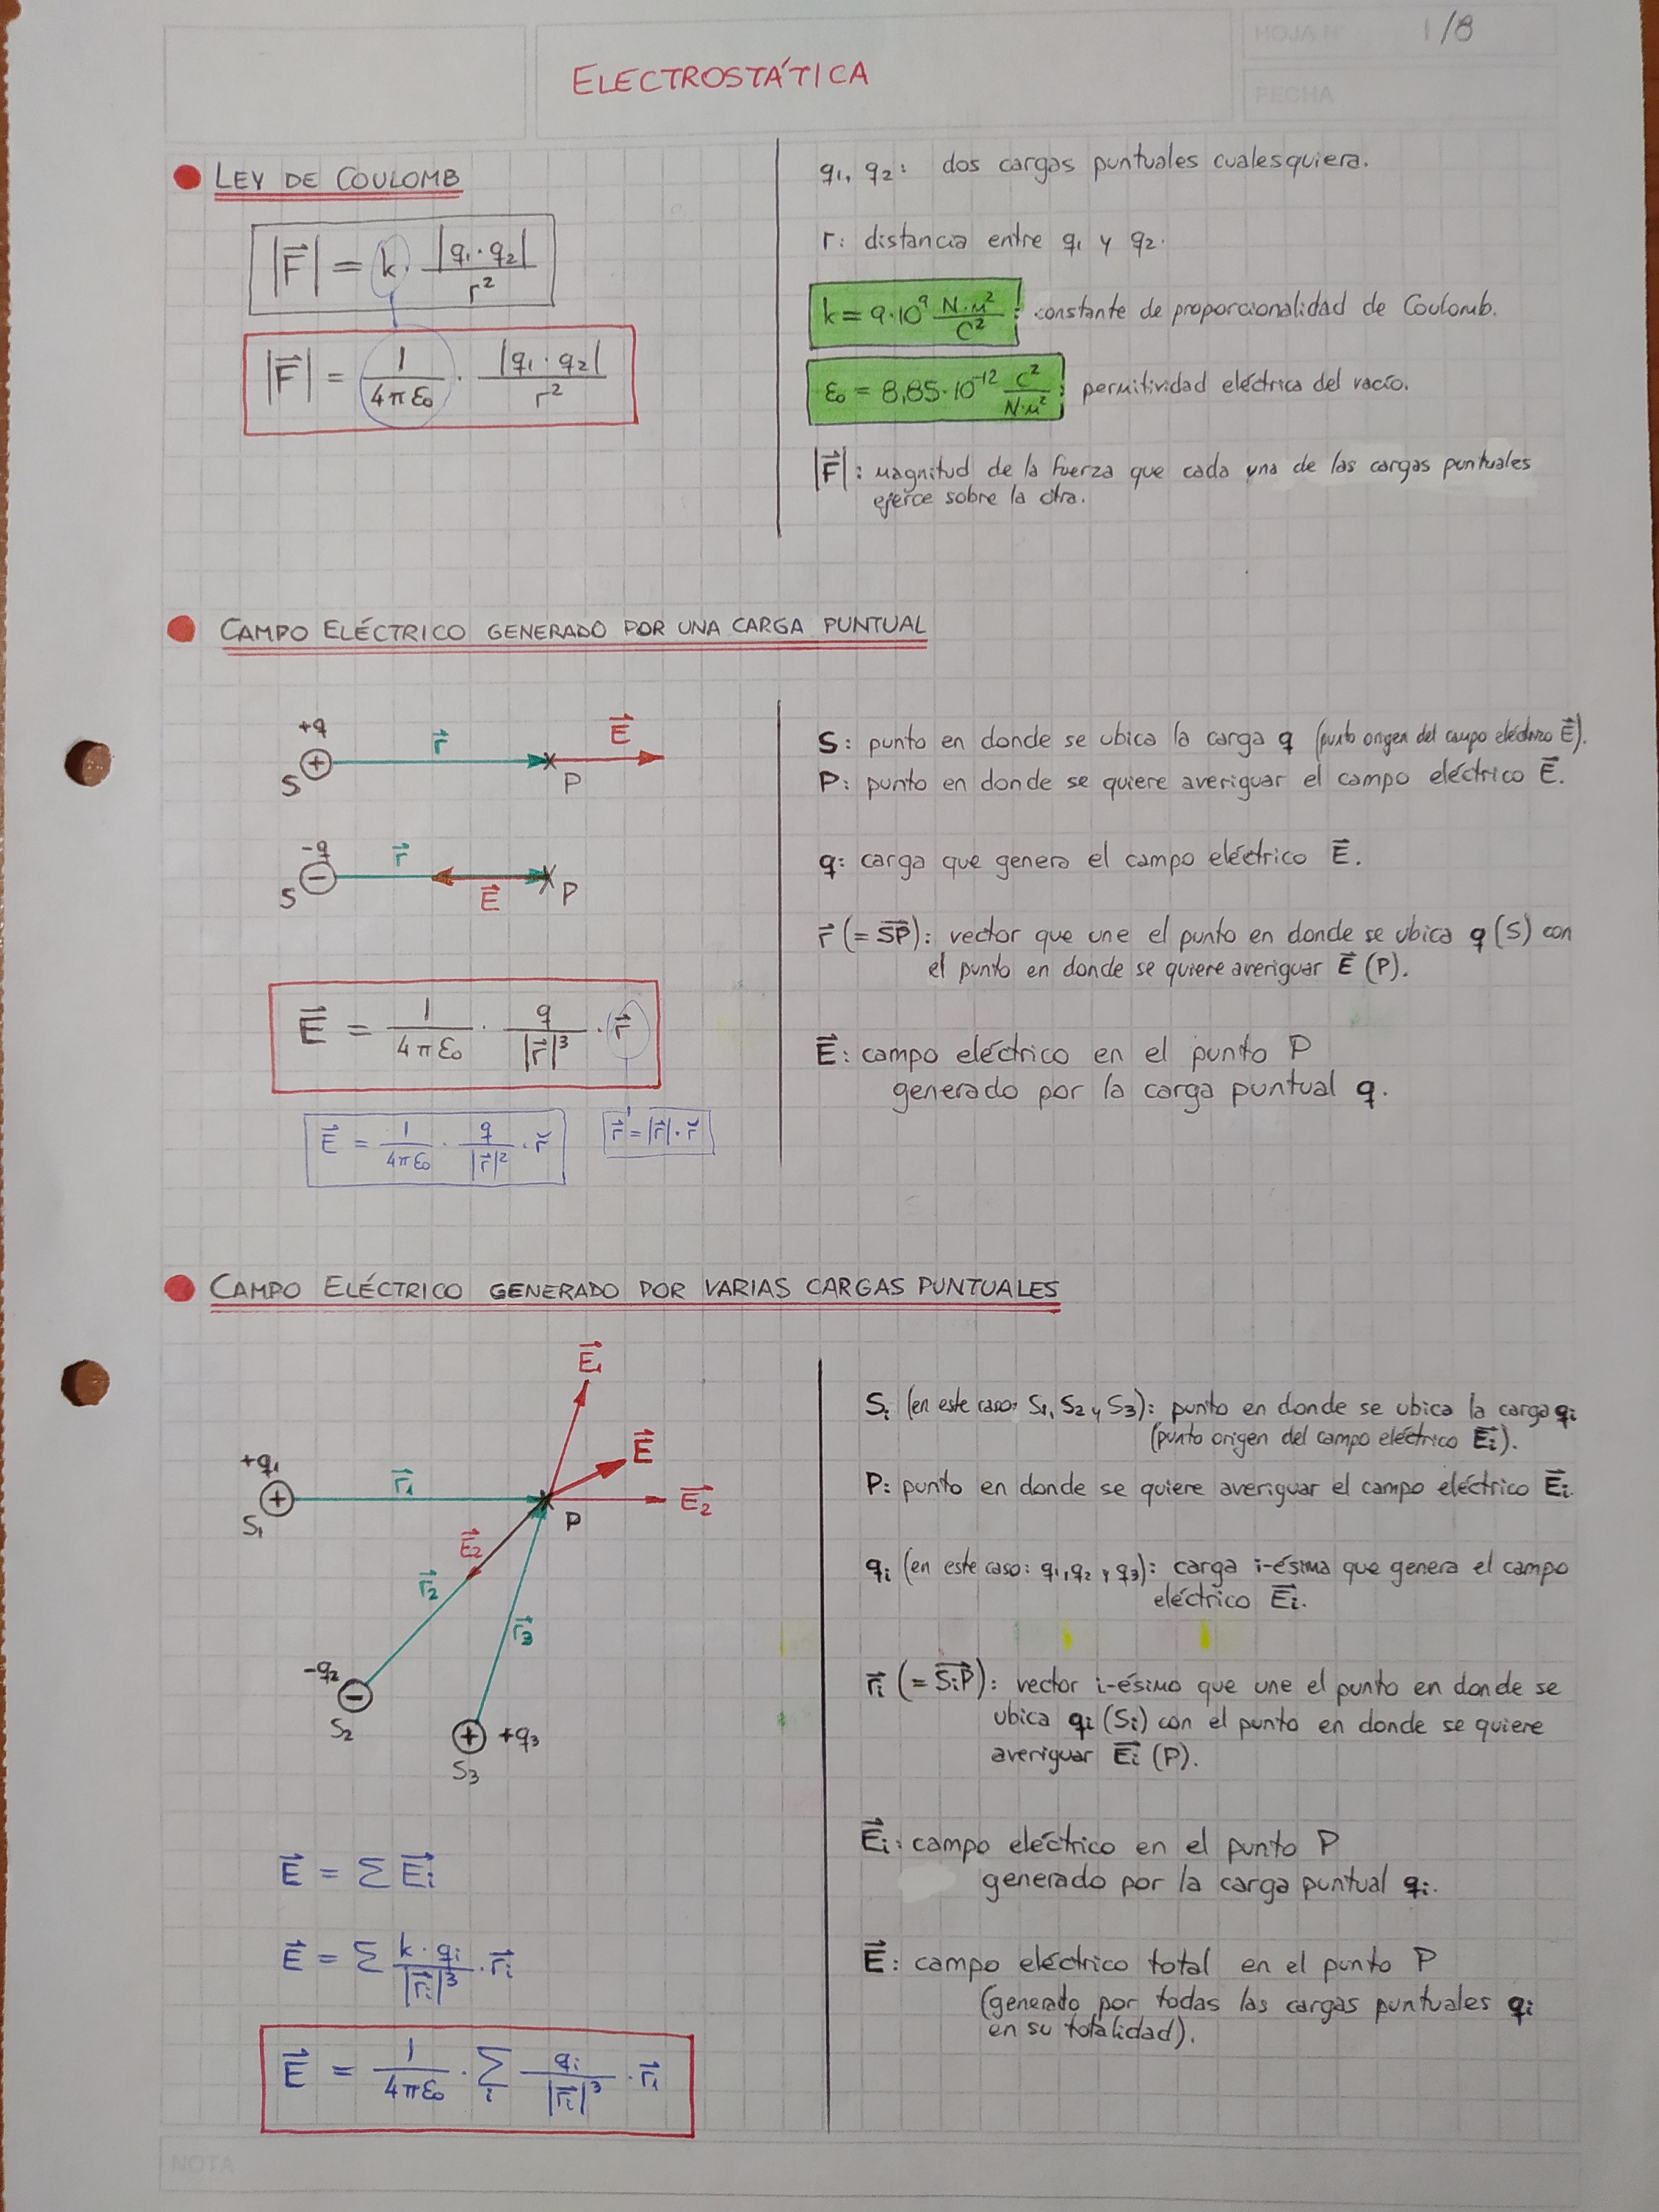 HOJA Nº 1/8
FECHA
ELECTROSTÁTICA
LEY DE COULOMB
|F⃗| = k · |q₁·q₂| / r²
|F⃗| = 1/(4πε₀) · |q₁·q₂| / r²
q₁, q₂: dos cargas puntuales cualesquiera.
r: distancia entre q₁ y q₂.
k = 9·10⁹ N·m²/C² : constante de proporcionalidad de Coulomb.
ε₀ = 8,85·10⁻¹² C²/N·m² : permitividad eléctrica del vacío.
|F⃗|: magnitud de la fuerza que cada una de las cargas puntuales
ejerce sobre la otra.
CAMPO ELÉCTRICO GENERADO POR UNA CARGA PUNTUAL
+q
r⃗
E⃗
S
+
P
-q
r⃗
S
−
E⃗
P
E⃗ = 1/(4πε₀) · q/|r⃗|³ · r⃗
E⃗ = 1/(4πε₀) · q/|r⃗|² · r̆
r⃗ = |r⃗| · r̆
S: punto en donde se ubica la carga q (punto origen del campo eléctrico E⃗).
P: punto en donde se quiere averiguar el campo eléctrico E⃗.
q: carga que genera el campo eléctrico E⃗.
r⃗ (= SP⃗): vector que une el punto en donde se ubica q (S) con
el punto en donde se quiere averiguar E⃗ (P).
E⃗: campo eléctrico en el punto P
generado por la carga puntual q.
CAMPO ELÉCTRICO GENERADO POR VARIAS CARGAS PUNTUALES
E₁⃗
E⃗
+q₁
r₁⃗
+
E₂⃗
S₁
P
E₂⃗
r₂⃗
r₃⃗
-q₂
−
S₂
+
+q₃
S₃
E⃗ = Σ Eᵢ⃗
E⃗ = Σ k·qᵢ/|rᵢ⃗|³ · rᵢ⃗
E⃗ = 1/(4πε₀) · Σᵢ qᵢ/|rᵢ⃗|³ · rᵢ⃗
Sᵢ (en este caso: S₁, S₂ y S₃): punto en donde se ubica la carga qᵢ
(punto origen del campo eléctrico Eᵢ⃗).
P: punto en donde se quiere averiguar el campo eléctrico Eᵢ⃗.
qᵢ (en este caso: q₁, q₂ y q₃): carga i-ésima que genera el campo
eléctrico Eᵢ⃗.
rᵢ⃗ (= SᵢP⃗): vector i-ésimo que une el punto en donde se
ubica qᵢ (Sᵢ) con el punto en donde se quiere
averiguar Eᵢ⃗ (P).
Eᵢ⃗: campo eléctrico en el punto P
generado por la carga puntual qᵢ.
E⃗: campo eléctrico total en el punto P
(generado por todas las cargas puntuales qᵢ
en su totalidad).
NOTA